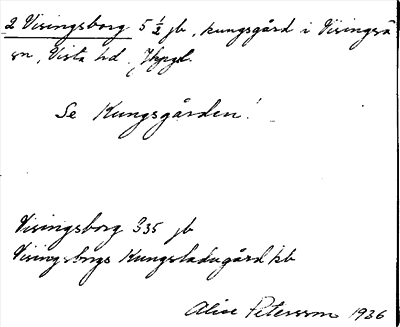 2 Visingsborg 5 ½ jb, kungsgård i Visingsö
sn, Vista hd. Jkpgl.
Se Kungsgården!
Visingsborg 335 jb
Visingsborgs Kungsladugård kb
Alice Petersson 1936